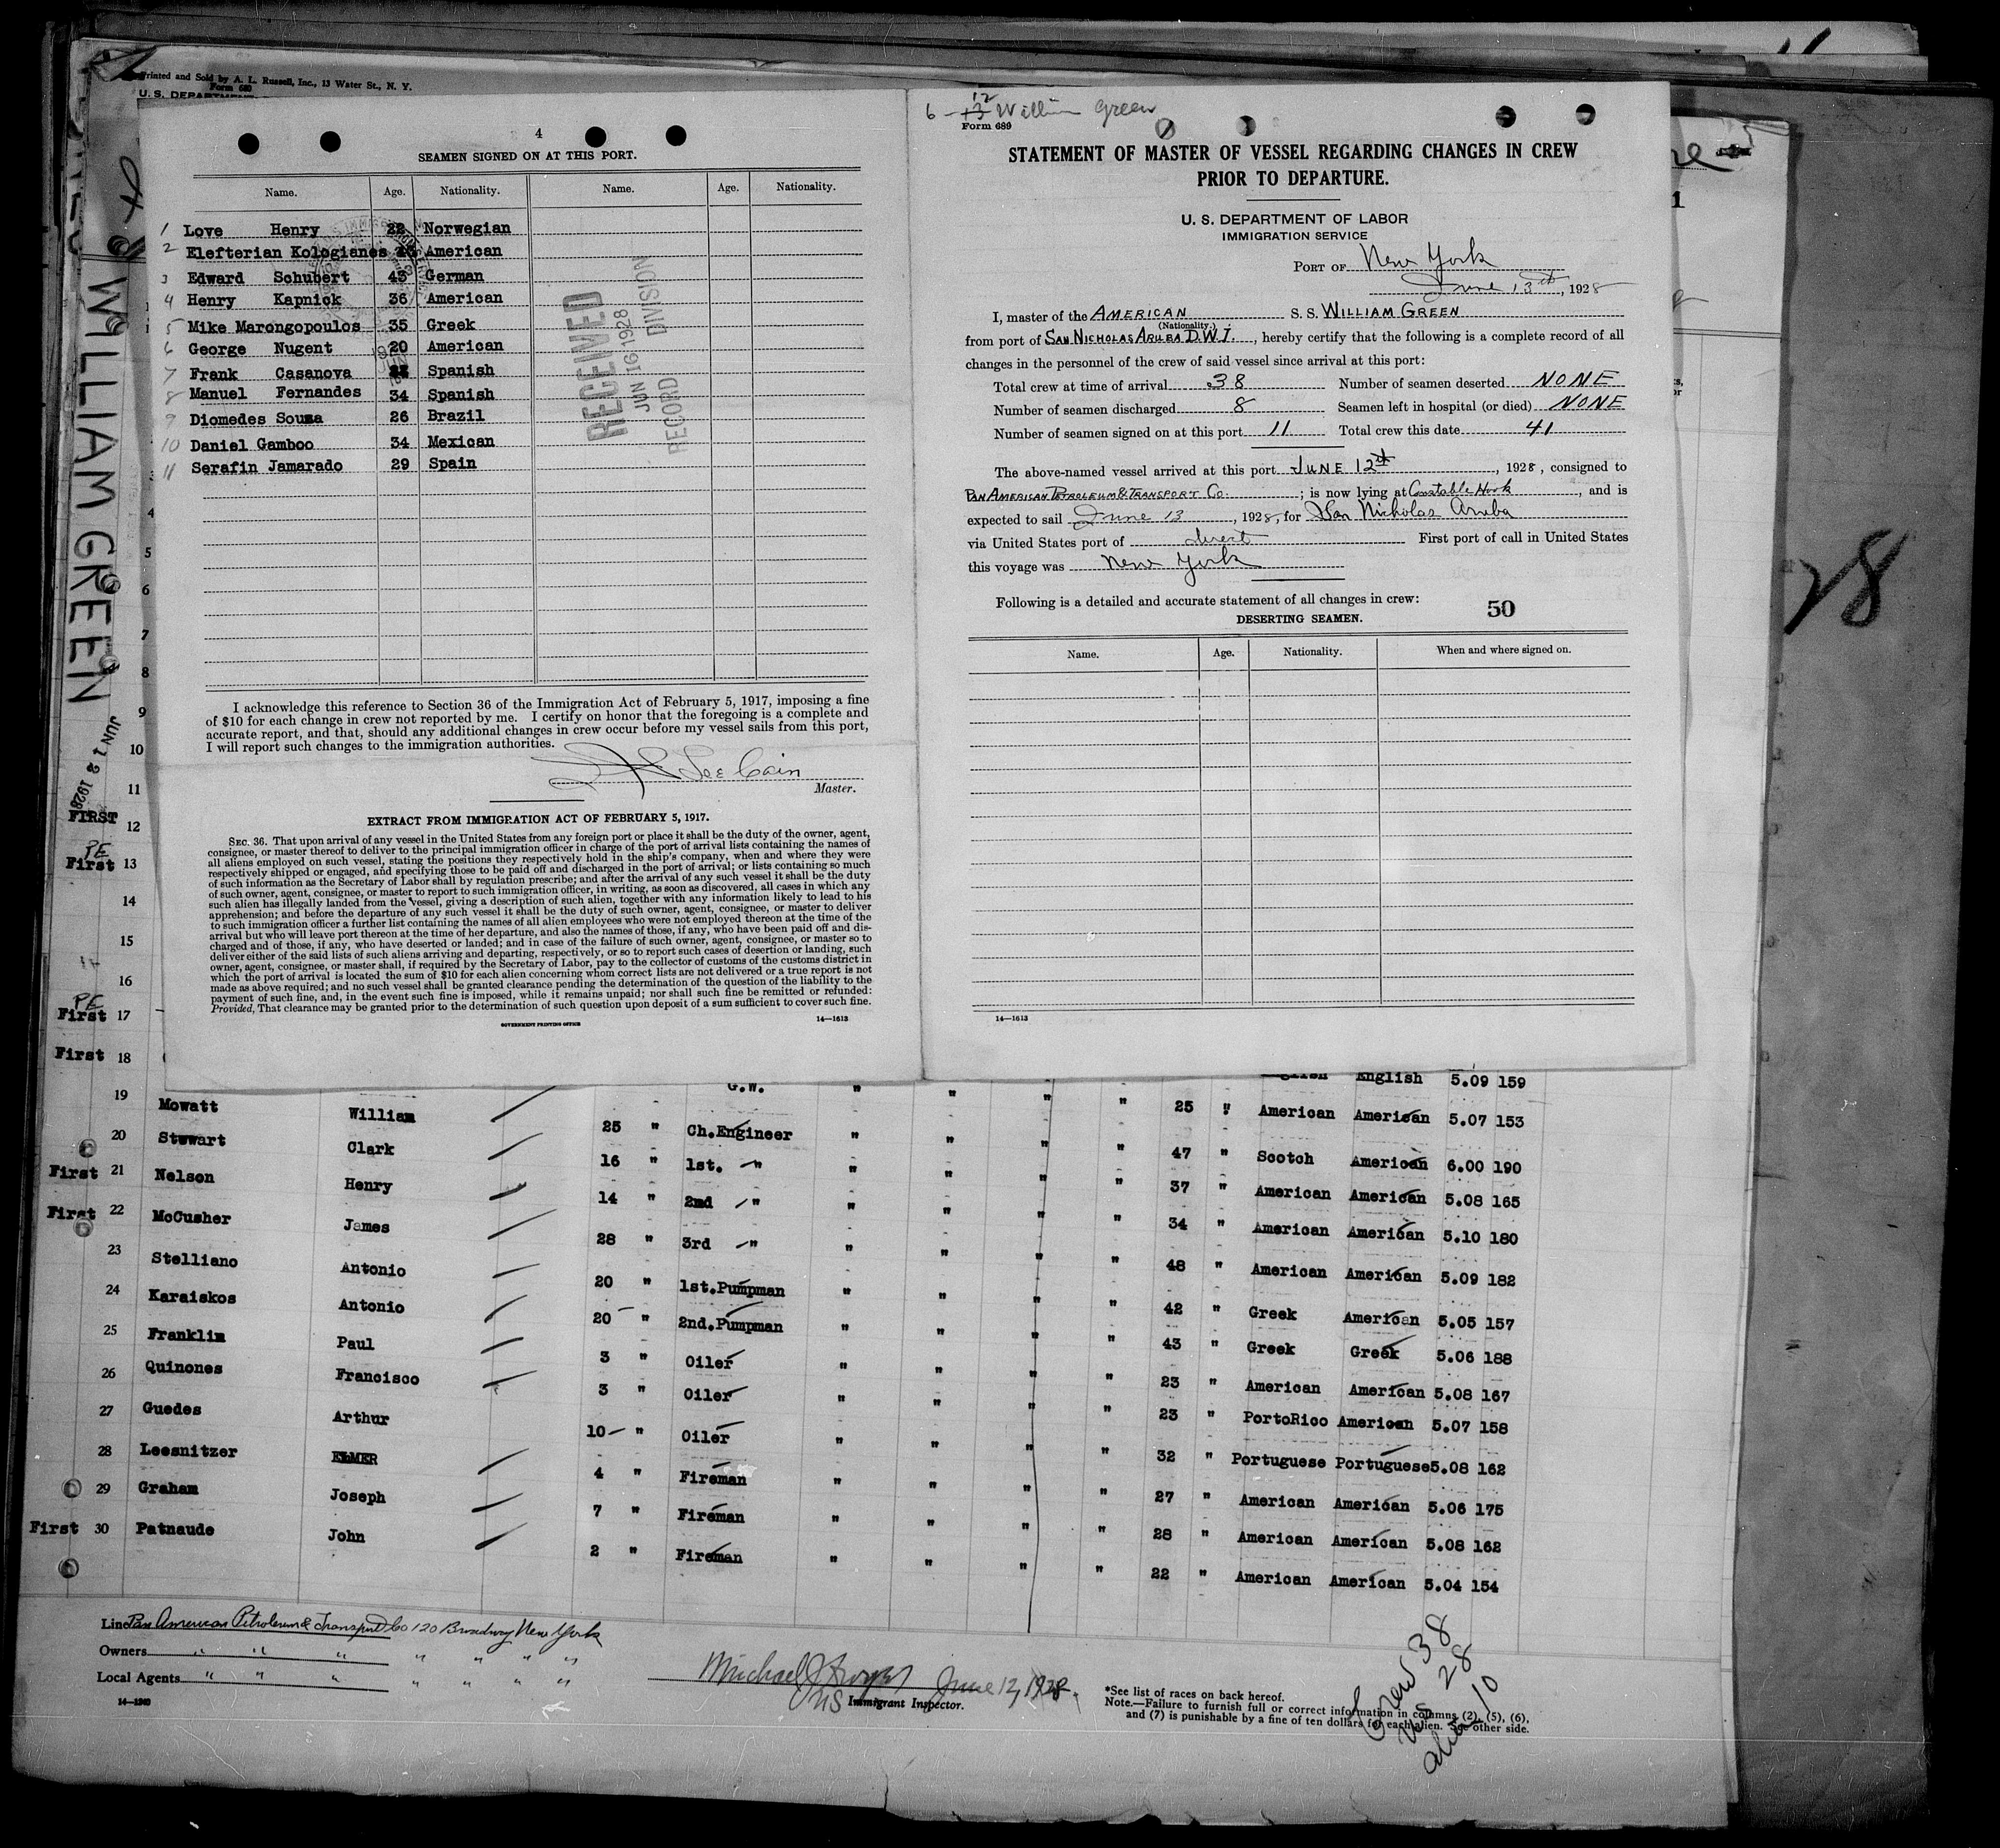 Printed and Sold by A. L. Russell, Inc., 13 Water St., N. Y.
Form 680
U. S. DEPARTMENT
WILLIAM GREEN
JUN 12 1928
4
SEAMEN SIGNED ON AT THIS PORT.
Name. Age. Nationality. Name. Age. Nationality.
1 Love Henry 22 Norwegian
2 Elefterian Kologianes American
3 Edward Schubert 43 German
4 Henry Kapnick 36 American
5 Mike Marongopoulos 35 Greek
6 George Nugent 20 American
7 Frank Casanova Spanish
8 Manuel Fernandes 34 Spanish
9 Diomedes Souza 26 Brazil
10 Daniel Gamboo 34 Mexican
11 Serafin Jamarado 29 Spain
RECEIVED
JUN 16 1928
RECORD DIVISION
I acknowledge this reference to Section 36 of the Immigration Act of February 5, 1917, imposing a fine
of $10 for each change in crew not reported by me. I certify on honor that the foregoing is a complete and
accurate report, and that, should any additional changes in crew occur before my vessel sails from this port,
I will report such changes to the immigration authorities.
Lee Cain
Master.
EXTRACT FROM IMMIGRATION ACT OF FEBRUARY 5, 1917.
SEC. 36. That upon arrival of any vessel in the United States from any foreign port or place it shall be the duty of the owner, agent,
consignee, or master thereof to deliver to the principal immigration officer in charge of the port of arrival lists containing the names of
all aliens employed on such vessel, stating the positions they respectively hold in the ship's company, when and where they were
respectively shipped or engaged, and specifying those to be paid off and discharged in the port of arrival; or lists containing so much
of such information as the Secretary of Labor shall by regulation prescribe; and after the arrival of any such vessel it shall be the duty
of such owner, agent, consignee, or master to report to such immigration officer, in writing, as soon as discovered, all cases in which any
such alien has illegally landed from the vessel, giving a description of such alien, together with any information likely to lead to his
apprehension; and before the departure of any such vessel it shall be the duty of such owner, agent, consignee, or master to deliver
to such immigration officer a further list containing the names of all alien employees who were not employed thereon at the time of the
arrival but who will leave port thereon at the time of her departure, and also the names of those, if any, who have been paid off and dis-
charged and of those, if any, who have deserted or landed; and in case of the failure of such owner, agent, consignee, or master so to
deliver either of the said lists of such aliens arriving and departing, respectively, or so to report such cases of desertion or landing, such
owner, agent, consignee, or master shall, if required by the Secretary of Labor, pay to the collector of customs of the customs district in
which the port of arrival is located the sum of $10 for each alien concerning whom correct lists are not delivered or a true report is not
made as above required; and no such vessel shall be granted clearance pending the determination of the question of the liability to the
payment of such fine, and, in the event such fine is imposed, while it remains unpaid; nor shall such fine be remitted or refunded:
Provided, That clearance may be granted prior to the determination of such question upon deposit of a sum sufficient to cover such fine.
GOVERNMENT PRINTING OFFICE 14—1613
6 - 12 William Green
Form 689
STATEMENT OF MASTER OF VESSEL REGARDING CHANGES IN CREW
PRIOR TO DEPARTURE.
U. S. DEPARTMENT OF LABOR
IMMIGRATION SERVICE
PORT OF New York
June 13th, 1928
I, master of the AMERICAN S. S. WILLIAM GREEN
(Nationality.)
from port of SAN NICHOLAS ARUBA D.W.I., hereby certify that the following is a complete record of all
changes in the personnel of the crew of said vessel since arrival at this port:
Total crew at time of arrival 38 Number of seamen deserted NONE
Number of seamen discharged 8 Seamen left in hospital (or died) NONE
Number of seamen signed on at this port 11 Total crew this date 41
The above-named vessel arrived at this port JUNE 12th, 1928, consigned to
PAN AMERICAN PETROLEUM & TRANSPORT CO.; is now lying at Constable Hook, and is
expected to sail June 13, 1928, for San Nicholas Aruba
via United States port of direct First port of call in United States
this voyage was New York
Following is a detailed and accurate statement of all changes in crew:
50
DESERTING SEAMEN.
Name. Age. Nationality. When and where signed on.
14—1613
28
4
5
6
7
8
9
10
11
FIRST 12
PE
First 13
14
15
16
PE
First 17
First 18
G.W. " " " " English 5.09 159
19 Mowatt William 25 " Ch.Engineer " " " " 25 " American American 5.07 153
20 Stewart Clark 16 " 1st. " " " " " 47 " Scotch American 6.00 190
First 21 Nelson Henry 14 " 2nd " " " " " 37 " American American 5.08 165
First 22 McCusher James 28 " 3rd " " " " " 34 " American American 5.10 180
23 Stelliano Antonio 20 " 1st.Pumpman " " " " 48 " American American 5.09 182
24 Karaiskos Antonio 20 " 2nd.Pumpman " " " " 42 " Greek American 5.05 157
25 Franklin Paul 3 " Oiler " " " " 43 " Greek Greek 5.06 188
26 Quinones Francisco 3 " Oiler " " " " 23 " American American 5.08 167
27 Guedes Arthur 10 " Oiler " " " " 23 " PortoRico American 5.07 158
28 Leesnitzer ELMER 4 " Fireman " " " " 32 " Portuguese Portuguese 5.08 162
29 Graham Joseph 7 " Fireman " " " " 27 " American American 5.06 175
First 30 Patnaude John 2 " Fireman " " " " 28 " American American 5.08 162
22 " American American 5.04 154
Line Pan American Petroleum & Transport Co 120 Broadway New York
Owners " " " " " " "
Local Agents " " " " " " "
14—1240
Michael June 12, 1928.
US Immigrant Inspector.
*See list of races on back hereof.
Note.—Failure to furnish full or correct information in columns (2), (5), (6),
and (7) is punishable by a fine of ten dollars for each alien. See other side.
Crew 38
US 28
alien 10